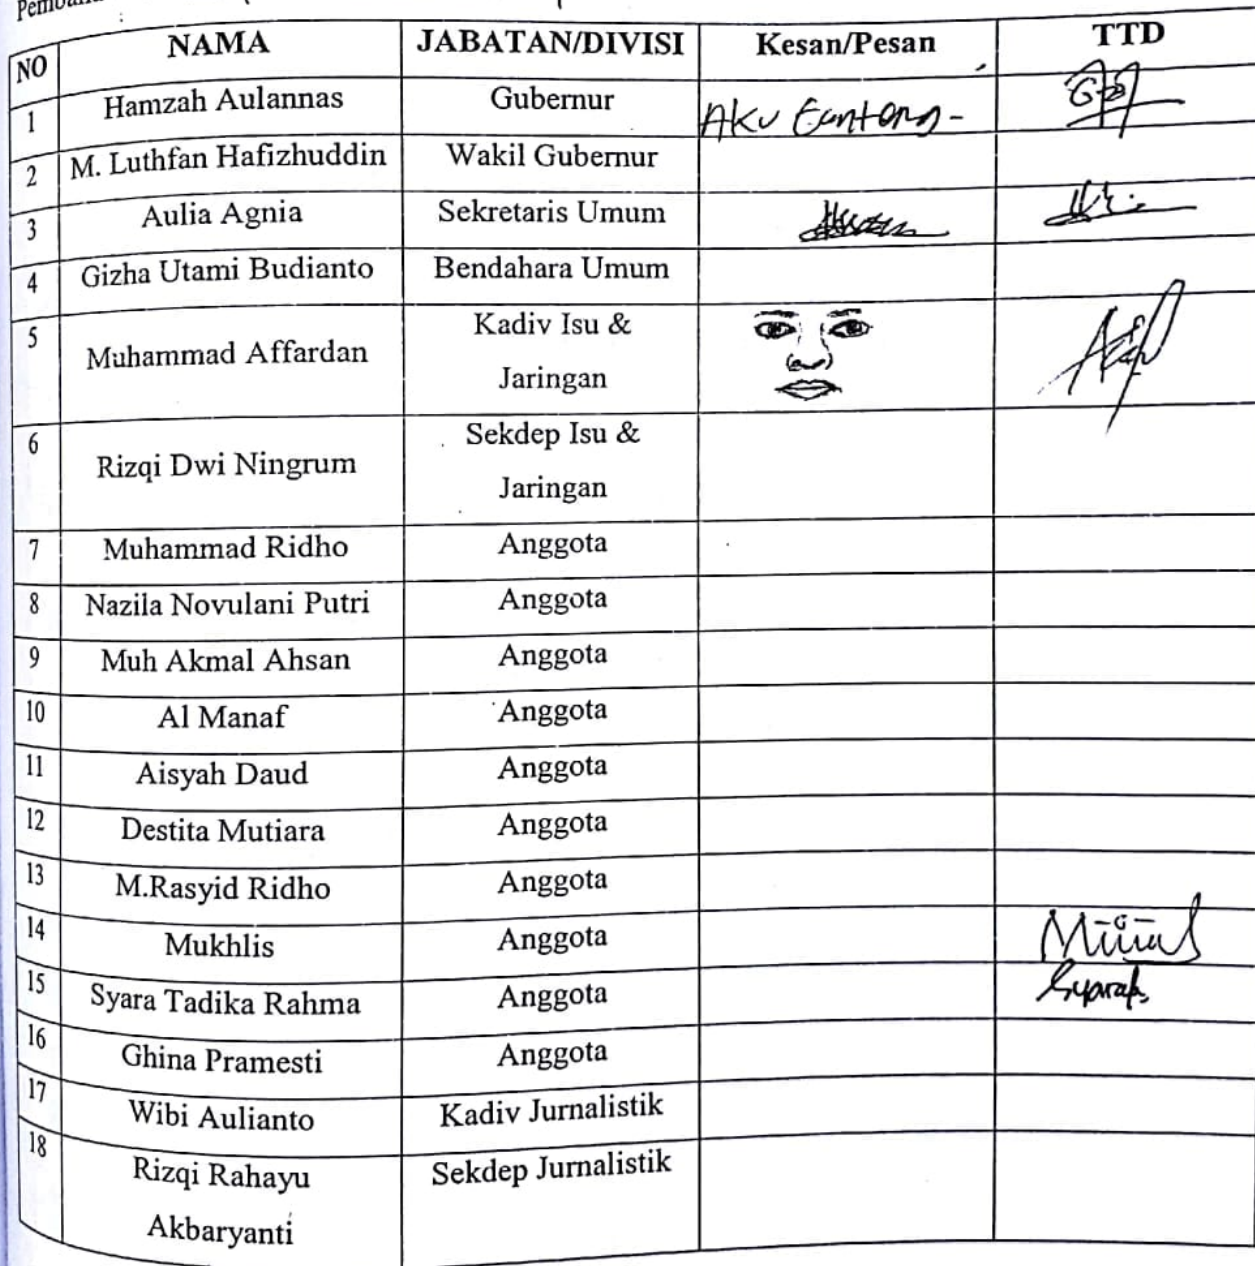 NO NAMA JABATAN/DIVISI Kesan/Pesan TTD
1 Hamzah Aulannas Gubernur Aku Gantong-
2 M. Luthfan Hafizhuddin Wakil Gubernur
3 Aulia Agnia Sekretaris Umum
4 Gizha Utami Budianto Bendahara Umum
5 Muhammad Affardan Kadiv Isu &
Jaringan
6 Rizqi Dwi Ningrum Sekdep Isu &
Jaringan
7 Muhammad Ridho Anggota
8 Nazila Novulani Putri Anggota
9 Muh Akmal Ahsan Anggota
10 Al Manaf Anggota
11 Aisyah Daud Anggota
12 Destita Mutiara Anggota
13 M.Rasyid Ridho Anggota
14 Mukhlis Anggota
15 Syara Tadika Rahma Anggota Syarah
16 Ghina Pramesti Anggota
17 Wibi Aulianto Kadiv Jurnalistik
18 Rizqi Rahayu Sekdep Jurnalistik
Akbaryanti